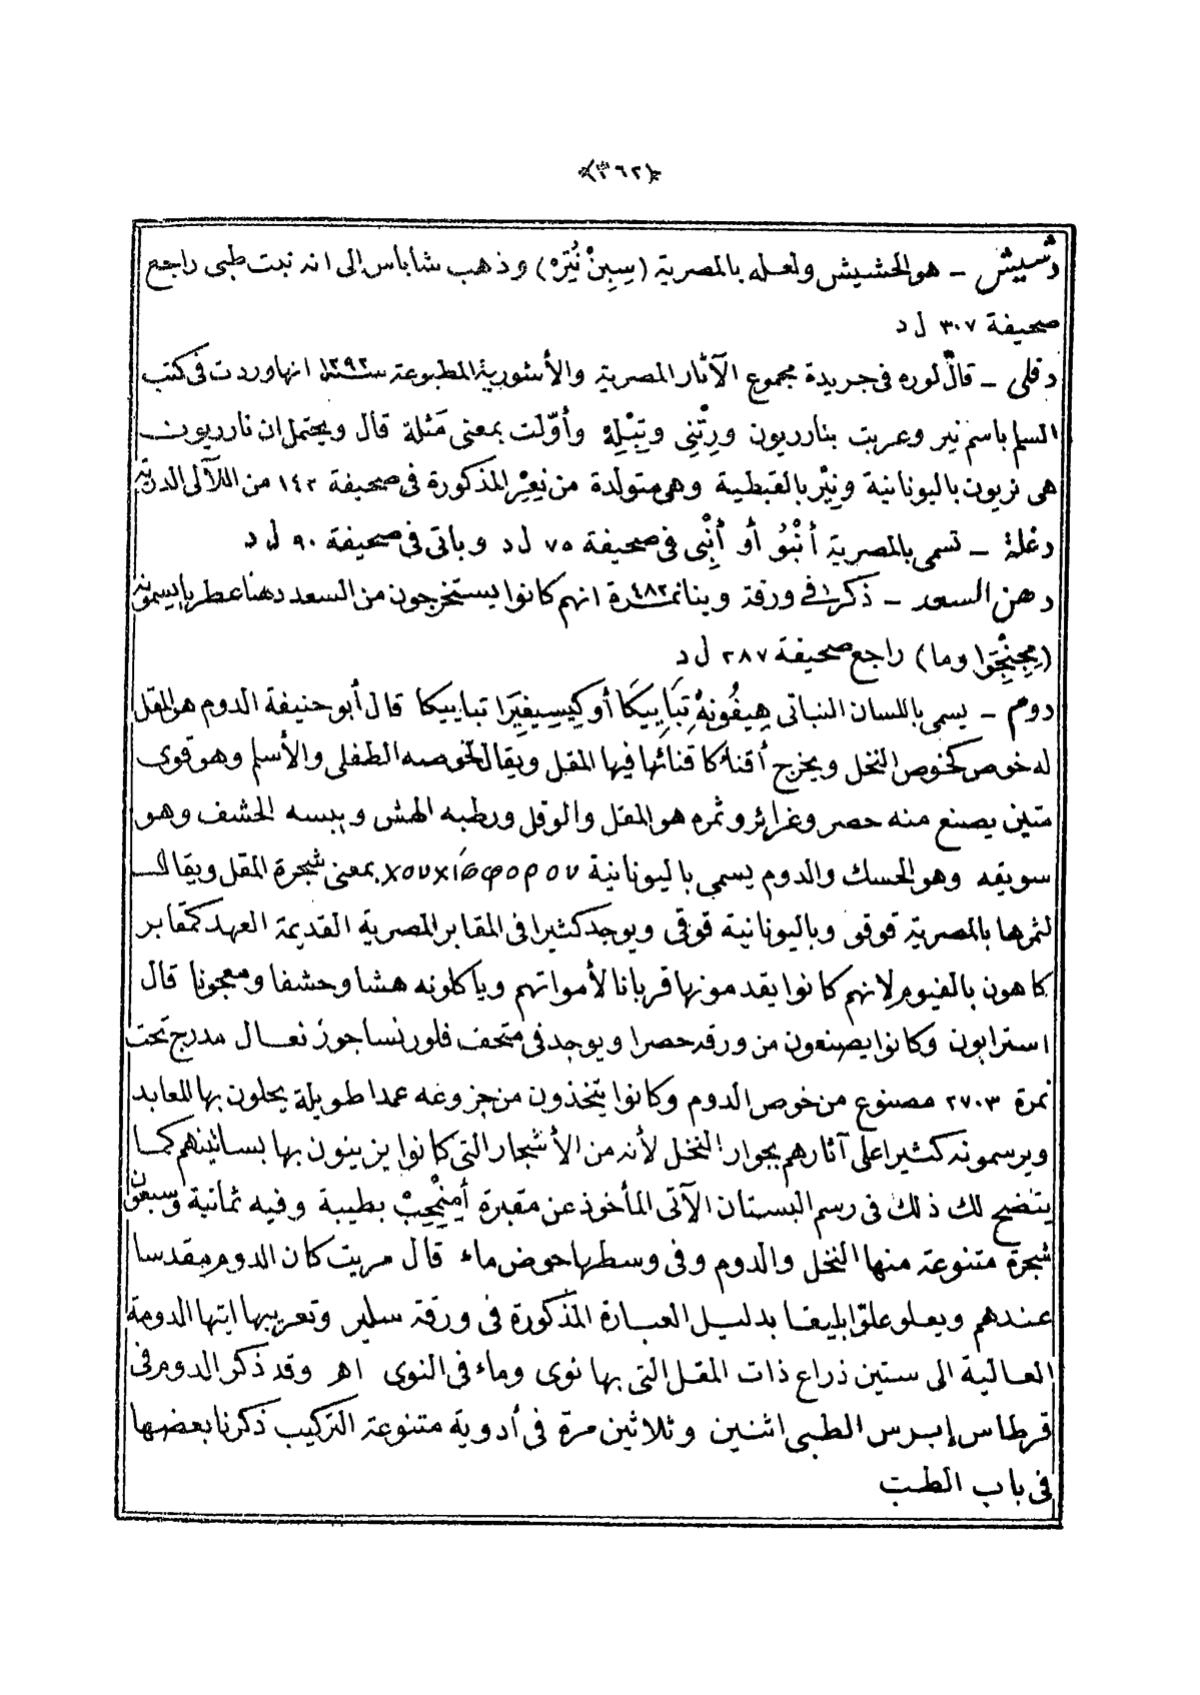 ﴿٣٦٢﴾
دشيش ـ هو الحشيش ولعله بالمصرية (سِبِنْ نُتِرْه) وذهب شاباس الى انه نبت طبى راجع
صحيفة ٣٠٧ ل د
دفلى ـ قال لوره فى جريدة مجموع الآثار المصرية والأشورية المطبوعة سنة ١٨٩٢ انها وردت فى كتب
السلم باسم نير وعربت بنارريون ورِتْنِى وتِبْلِهْ وأوّلت بمعنى مَثلة قال ويحتمل ان نارريون
هى نريون باليونانية ونِيْر بالقبطية وهى متولدة من نعير المذكورة فى صحيفة ١٤٢ من اللآلى الدرية
دغلة ـ تسمى بالمصرية أنْبُو أو أنْبِى فى صحيفة ٧٥ ل د وباتى فى صحيفة ٩٠ ل د
دهن السعد ـ ذكر فى ورقة وينا نمرة ٤٨٢ انهم كانوا يستخرجون من السعد دهنا عطريا يسمونه
(مِجِنْجِوَا وما) راجع صحيفة ٢٨٧ ل د
دوم ـ يسمى باللسان النباتى هِيفُونِهْ تِبَايِيكَا أو كِيسِيفِيَرا تباييكا قال أبو حنيفة الدوم هو المقل
له خوص كخوص النخل ويخرج أقناء كاقنائها فيها المقل ويقال لخوصه الطفلى والأسلم وهو قوى
متين يصنع منه حصر وغرائر وثمره هو المقل والوقل ورطبه الهش ويبسه الخشف وهو
سويقه وهو الحسك والدوم يسمى باليونانية χουχιόφορου بمعنى شجرة المقل ويقال
لثمرها بالمصرية قوقو وباليونانية قوقى ويوجد كثيرا فى المقابر المصرية القديمة العهد كمقابر
كاهون بالفيوم لانهم كانوا يقدمونها قربانا لأمواتهم وياكلونه هشا وحشفا ومعجونا قال
استرابون وكانوا يصنعون من ورقه حصرا ويوجد فى متحف فلورنسا جوز نعال مدرج تحت
نمرة ٢٧٠٣ مصنوع من خوص الدوم وكانوا يتخذون من جزوعه عمدا طويلة يحلون بها المعابد
ويرسمونه كثيرا على آثارهم بجوار النخل لأنه من الأشجار التى كانوا يزينون بها بساتينهم كما
يتضح لك ذلك فى رسم البستان الآتى المأخوذ عن مقبرة أمِنِمْحِبْ بطيبة وفيه ثمانية وسبعون
شجرة متنوعة منها النخل والدوم وفى وسطها حوض ماء قال مريت كان الدوم مقدسا
عندهم ويعلو علوّا بليغا بدليل العبارة المذكورة فى ورقة سلير وتعريبها ايتها الدومة
العالية الى ستين ذراع ذات المقل التى بها نوى وماء فى النوى اهـ وقد ذكر الدوم فى
قرطاس إبرس الطبى اثنين وثلاثين مرة فى أدوية متنوعة التركيب ذكرنا بعضها
فى باب الطب